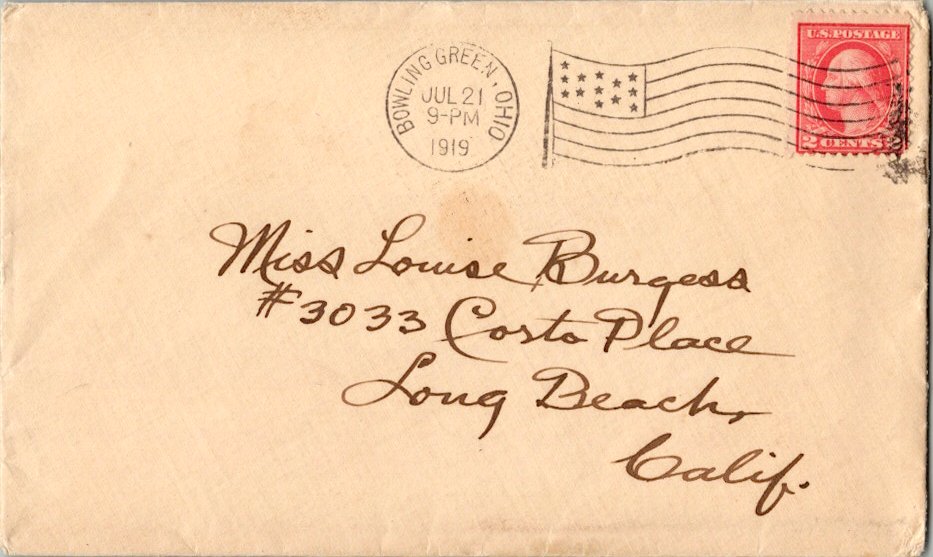 BOWLING GREEN, OHIO
JUL 21
9-PM
1919
U.S. POSTAGE
2 CENTS 2
Miss Louise Burgess
#3033 Costa Place
Long Beach,
Calif.